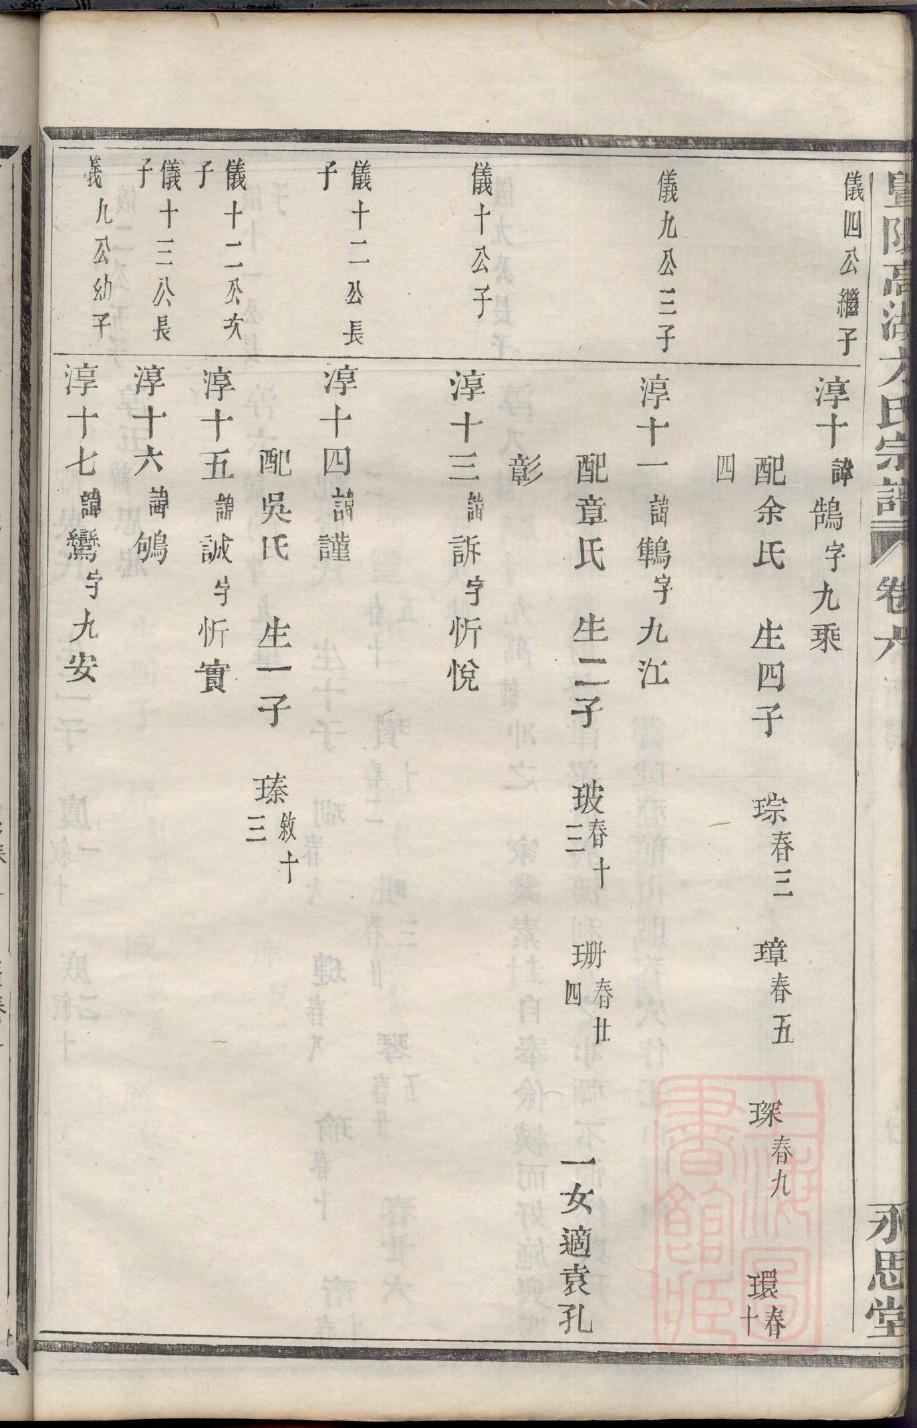 暨陽高湖方氏宗譜 卷六 永思堂
儀四公繼子
淳十諱鵠字九乘
配余氏 生四子 琮春三 璋春五 琛春九 環春十
四
儀九公三子
淳十一諱鶽字九江
配章氏 生二子 玻春十三 珊春廿四 一女適袁孔
彰
儀十公子
淳十三諱訴字忻悅
儀十二公長子
淳十四諱謹
配吳氏 生一子 瑧敘十三
儀十二公次子
淳十五諱誠字忻實
儀十三公長子
淳十六諱鴝
義九公幼子
淳十七諱鸞字九安